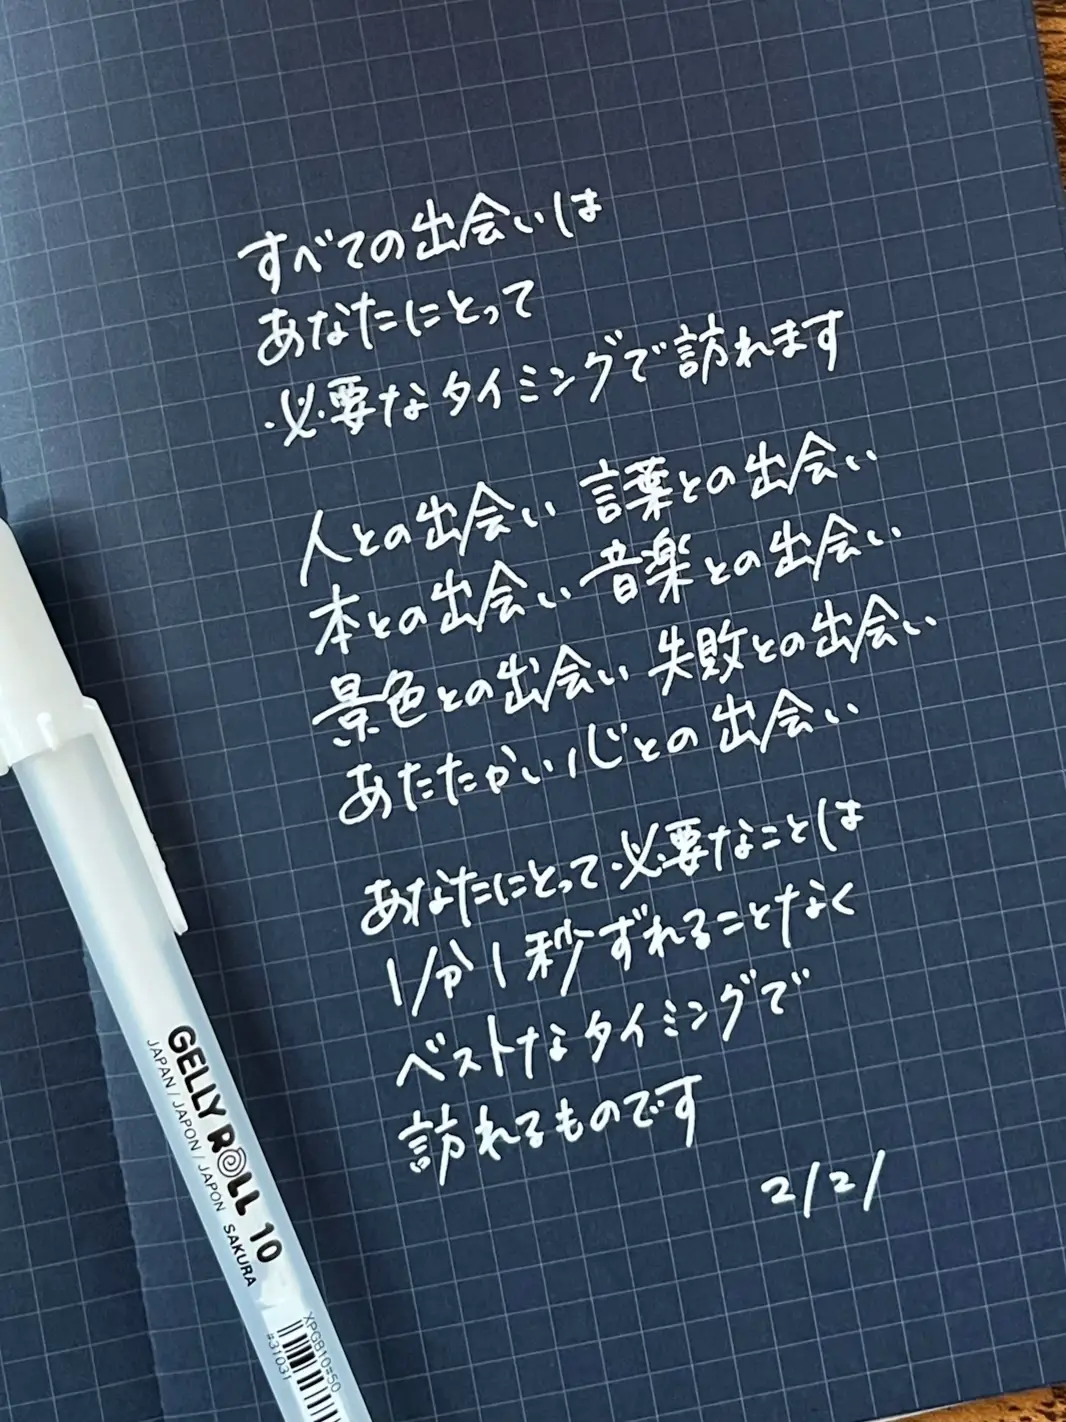 すべての出会いは
あなたにとって
必要なタイミングで訪れます
人との出会い 言葉との出会い
本との出会い 音楽との出会い
景色との出会い 失敗との出会い
あたたかい心との出会い
あなたにとって必要なことは
1分1秒ずれることなく
ベストなタイミングで
訪れるものです
2/21
GELLY ROLL 10
JAPAN / JAPON / JAPON SAKURA
XPGB10#50
#31031